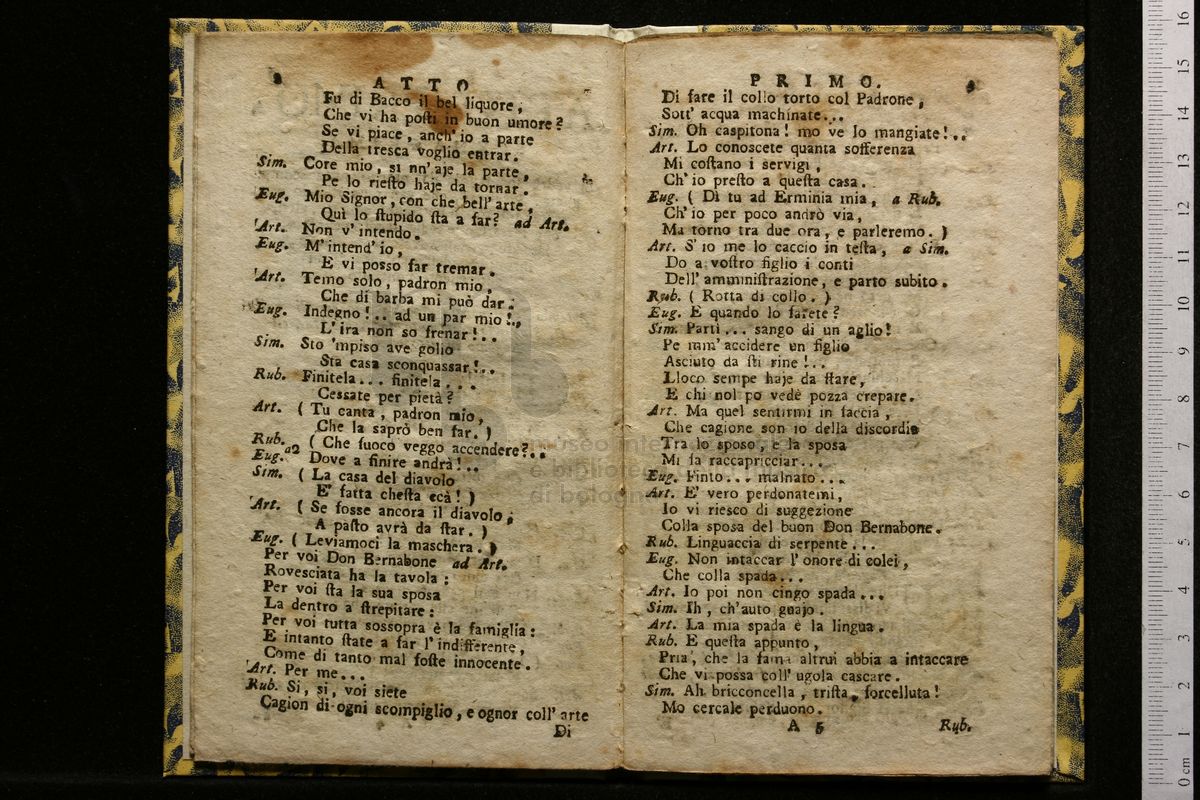 8
ATTO
Fu di Bacco il bel liquore,
Che vi ha poſti in buon umore?
Se vi piace, anch' io a parte
Della treſca voglio entrar.
Sim. Core mio, si nn' aje la parte,
Pe lo rieſto haje da tornar.
Eug. Mio Signor, con che bell' arte,
Quì lo ſtupido ſta a far? ad Art.
Art. Non v' intendo.
Eug. M' intend' io,
E vi poſſo far tremar.
Art. Temo ſolo, padron mio,
Che di barba mi può dar.
Eug. Indegno!.. ad un par mio!..
L' ira non so frenar!..
Sim. Sto 'mpiso ave golio
Sta casa sconquaſſar!..
Rub. Finitela... finitela...
Ceſſate per pietà?
Art. (Tu canta, padron mio,
Che la saprò ben far.)
Rub. Eug. a2 (Che fuoco veggo accendere?..
Dove a finire andrà!..
Sim. (La casa del diavolo
E' fatta cheſta ccà!)
Art. (Se foſſe ancora il diavolo,
A paſto avrà da ſtar.)
Eug. (Leviamoci la maschera.)
Per voi Don Bernabone ad Art.
Rovesciata ha la tavola:
Per voi ſta la sua sposa
La dentro a ſtrepitare:
Per voi tutta sossopra è la famiglia:
E intanto ſtate a far l' indifferente,
Come di tanto mal foſte innocente.
Art. Per me...
Rub. Si, si, voi siete
Cagion di ogni scompiglio, e ognor coll' arte
Di
PRIMO.
9
Di fare il collo torto col Padrone,
Sott' acqua machinate...
Sim. Oh caspitona! mo ve lo mangiate!..
Art. Lo conoscete quanta sofferenza
Mi coſtano i servigi,
Ch' io preſto a queſta casa.
Eug. (Di tu ad Erminia mia, a Rub.
Ch' io per poco andrò via,
Ma torno tra due ora, e parleremo.)
Art. S' io me lo caccio in teſta, a Sim.
Do a voſtro figlio i conti
Dell' amminiſtrazione, e parto subito.
Rub. (Rotta di collo.)
Eug. E quando lo farete?
Sim. Parti... sango di un aglio!
Pe mm' accidere un figlio
Asciuto da ſti rine!..
Lloco sempe haje da ſtare,
E chi nol po vedè pozza crepare.
Art. Ma quel sentirmi in faccia,
Che cagione son io della discordia
Tra lo sposo, e la sposa
Mi fa raccapricciar...
Eug. Finto... malnato...
Art. E' vero perdonatemi,
Io vi riesco di suggezione
Colla sposa del buon Don Bernabone.
Rub. Linguaccia di serpente...
Eug. Non intaccar l' onore di colei,
Che colla spada...
Art. Io poi non cingo spada...
Sim. Ih, ch' auto guajo.
Art. La mia spada è la lingua.
Rub. E queſta appunto,
Pria, che la fama altrui abbia a intaccare
Che vi poſſa coll' ugola cascare.
Sim. Ah bricconcella, triſta, forcelluta!
Mo cercale perduono.
A 5
Rub.